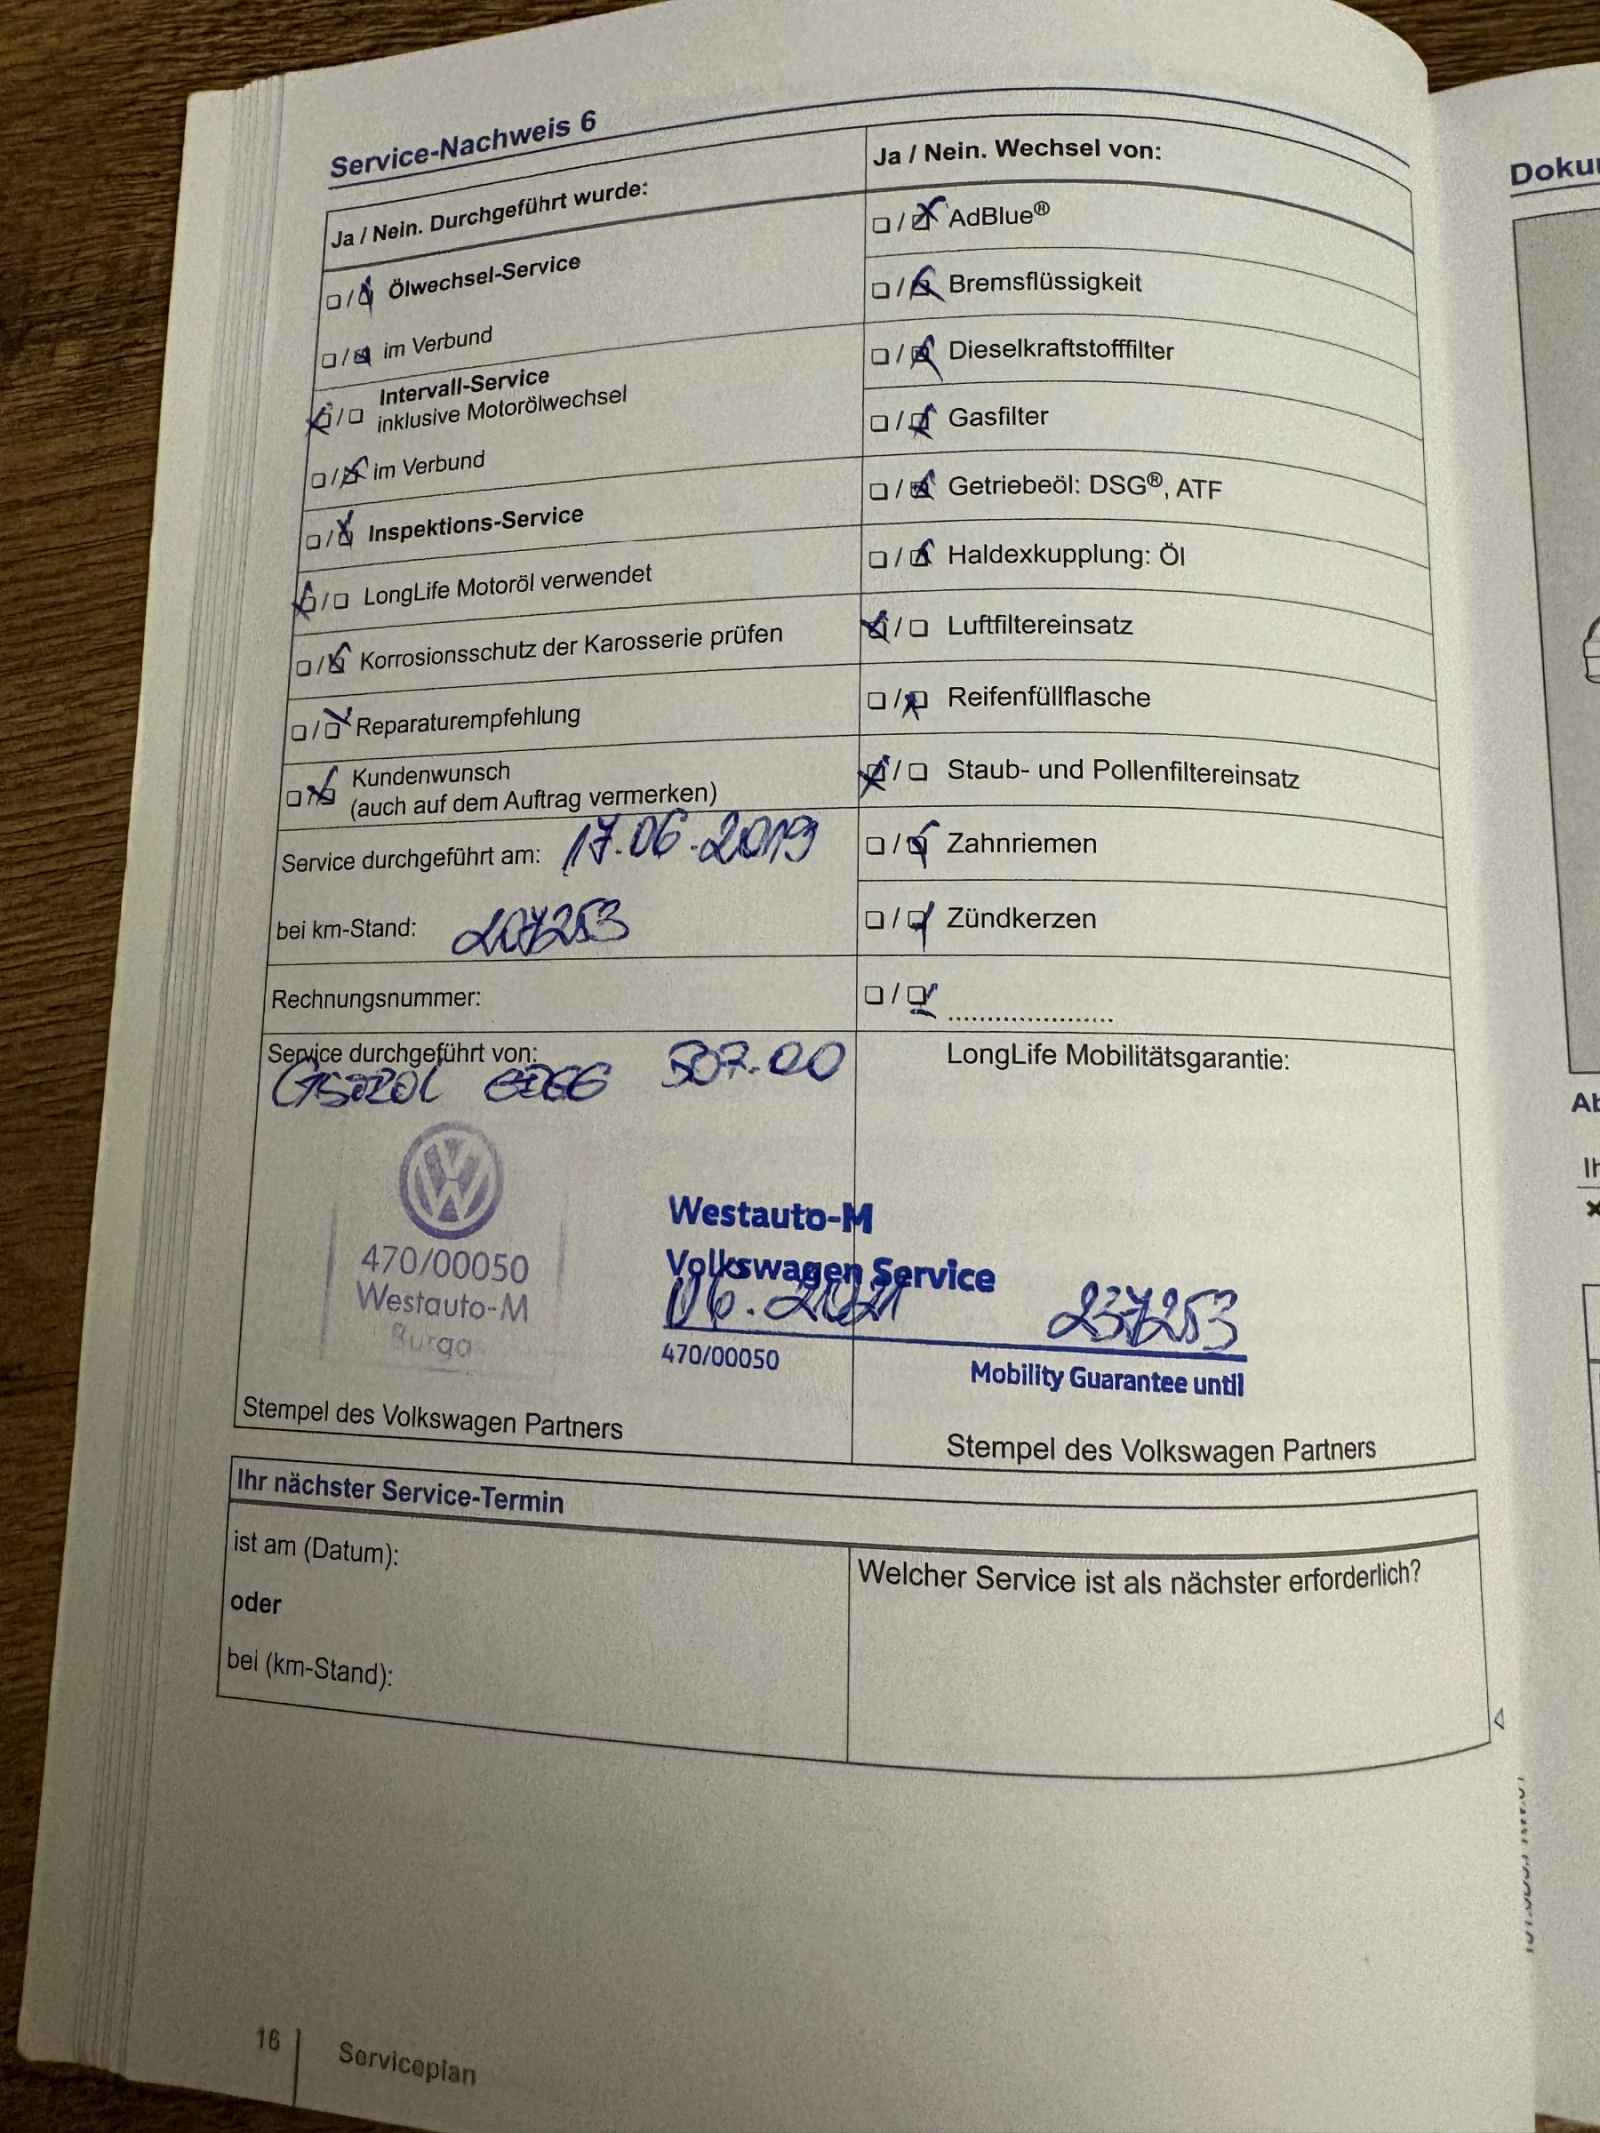 Service-Nachweis 6
Ja / Nein. Durchgeführt wurde:
Ölwechsel-Service
im Verbund
Intervall-Service
inklusive Motorölwechsel
im Verbund
Inspektions-Service
LongLife Motoröl verwendet
Korrosionsschutz der Karosserie prüfen
Reparaturempfehlung
Kundenwunsch
(auch auf dem Auftrag vermerken)
Service durchgeführt am: 17.06.2019
bei km-Stand: 207253
Rechnungsnummer:
Service durchgeführt von:
507.00
470/00050
Westauto-M
Burga
Stempel des Volkswagen Partners
Ja / Nein. Wechsel von:
AdBlue®
Bremsflüssigkeit
Dieselkraftstofffilter
Gasfilter
Getriebeöl: DSG®, ATF
Haldexkupplung: Öl
Luftfiltereinsatz
Reifenfüllflasche
Staub- und Pollenfiltereinsatz
Zahnriemen
Zündkerzen
LongLife Mobilitätsgarantie:
Westauto-M
Volkswagen Service
06.2021 237253
470/00050 Mobility Guarantee until
Stempel des Volkswagen Partners
Ihr nächster Service-Termin
ist am (Datum):
oder
bei (km-Stand):
Welcher Service ist als nächster erforderlich?
16 Serviceplan